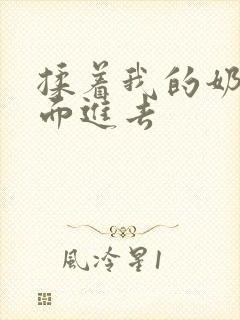 揉着我的奶
而進去
風冷星1